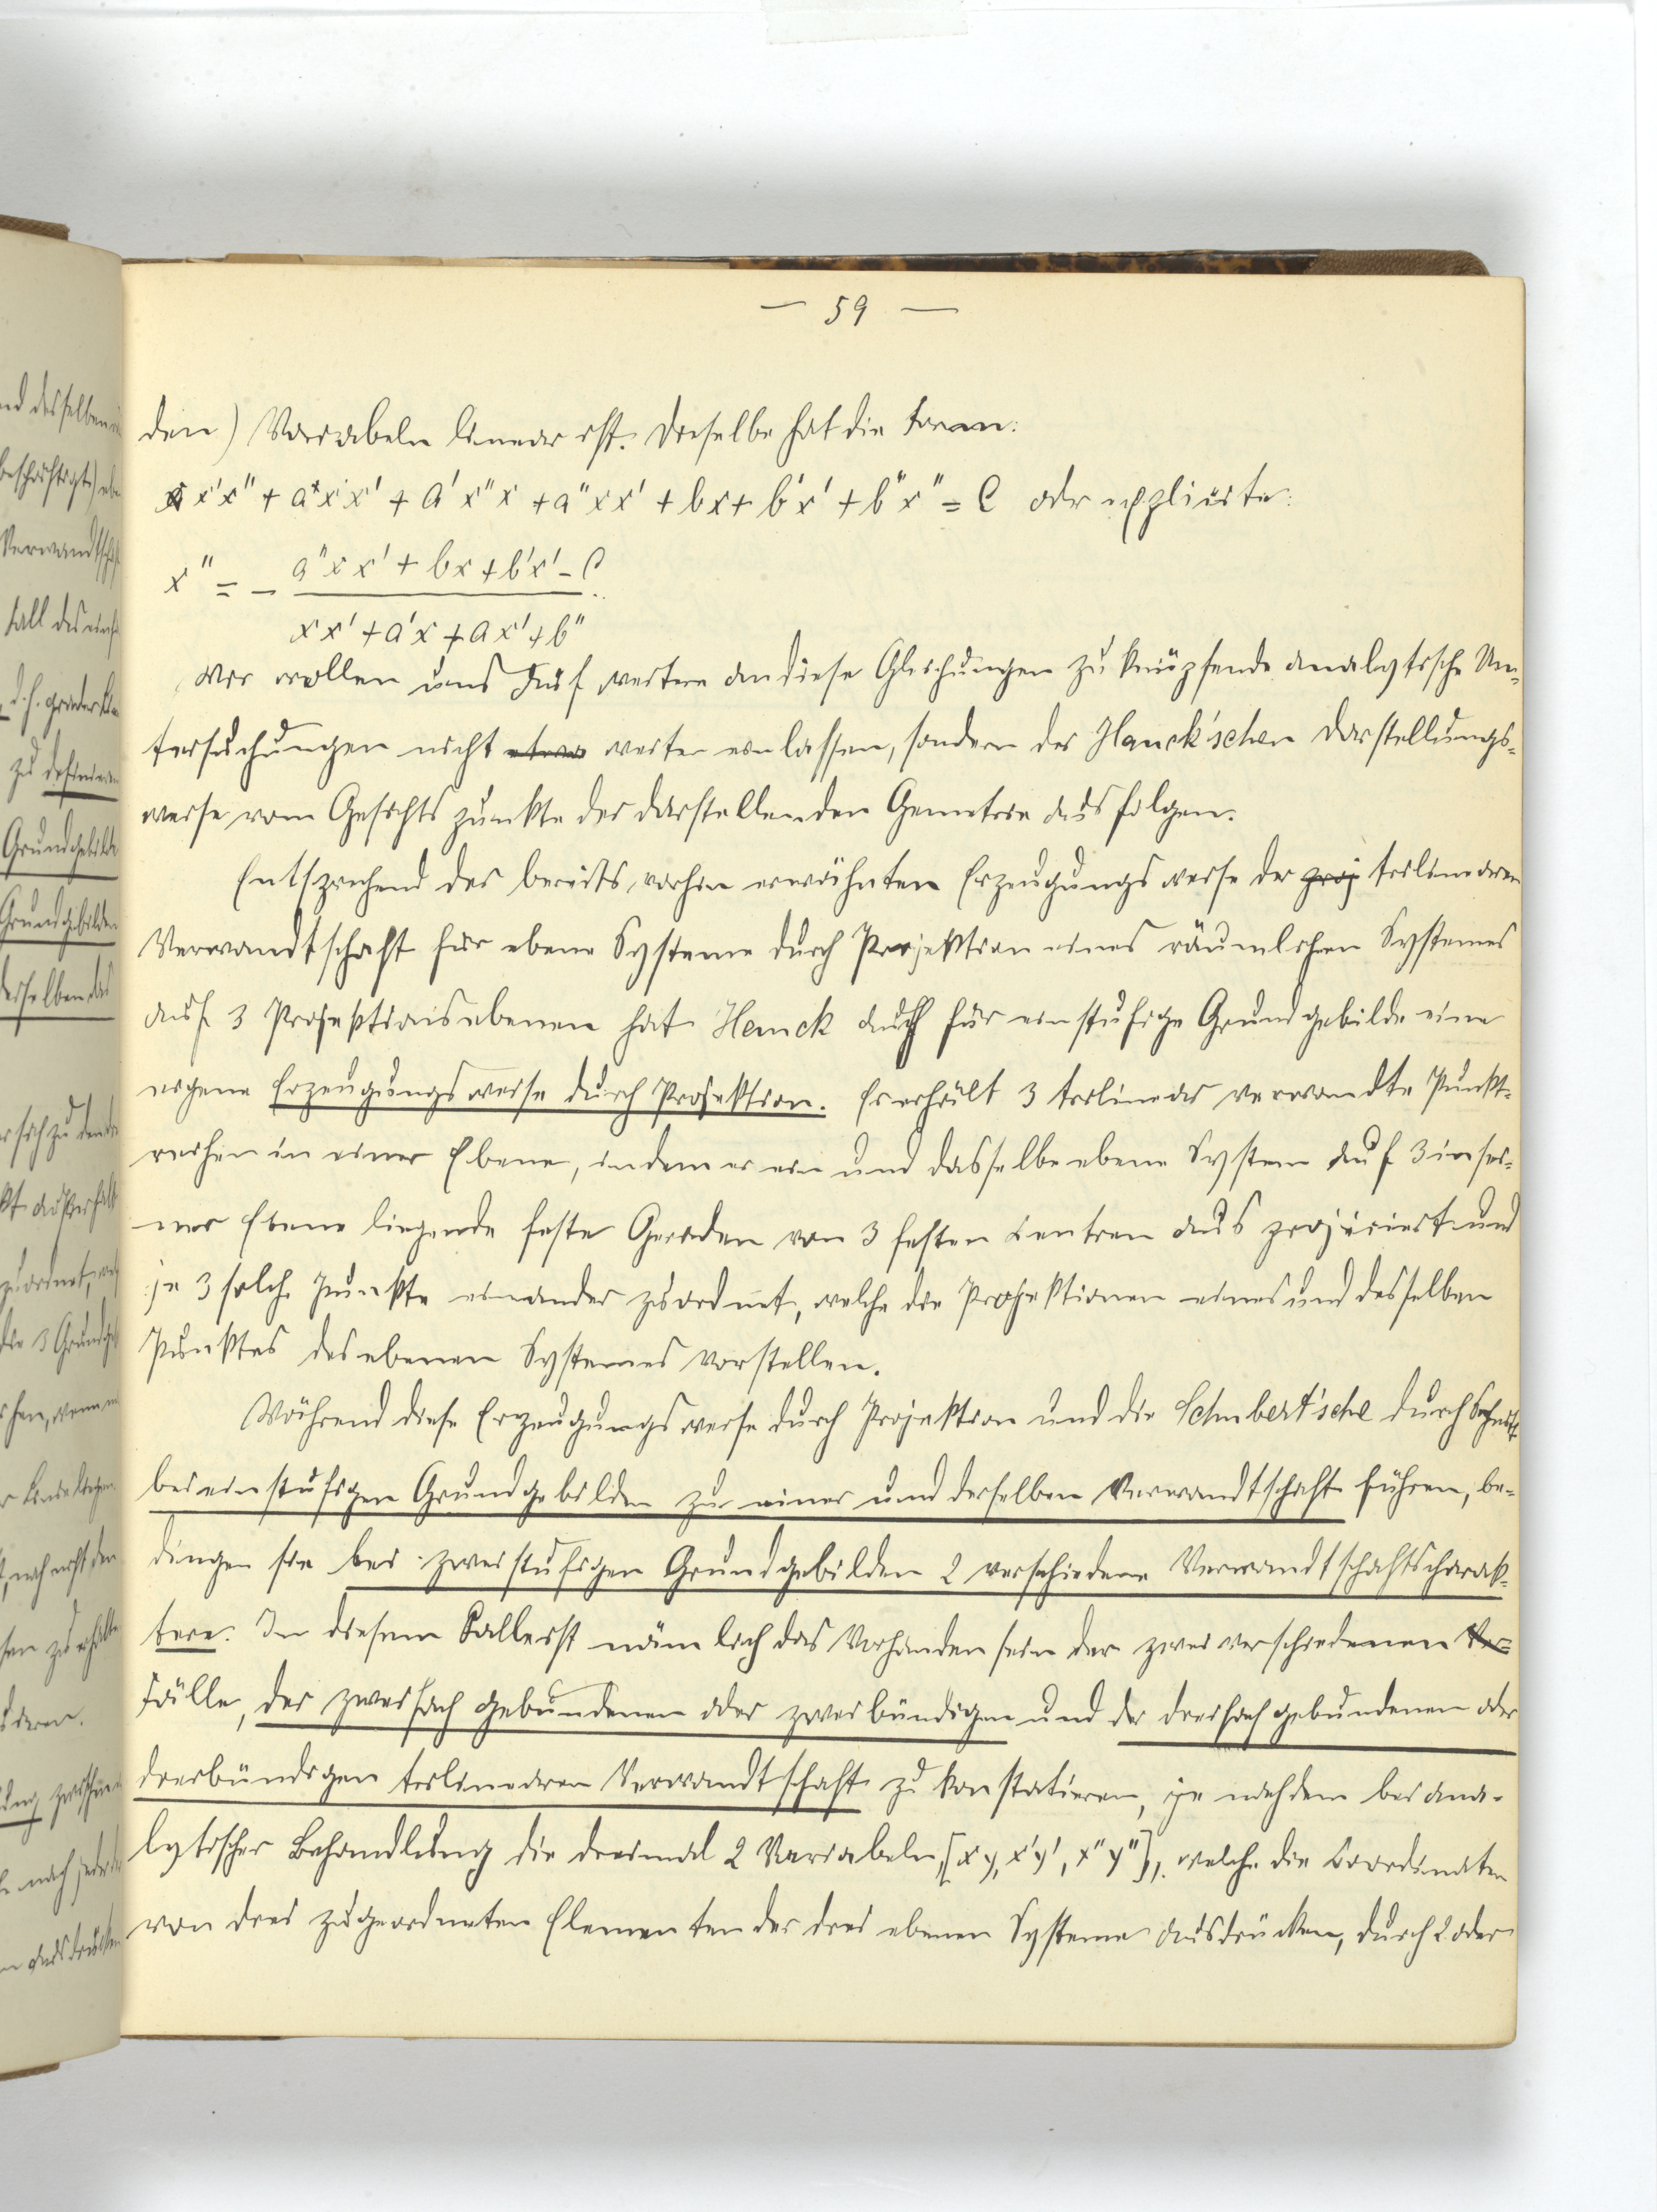 — 59 —
den) Variabeln linear ist. Dieselbe hat die Form:
x x' x'' + a x' x'' + a' x'' x + a'' x x' + b x + b' x' + b'' x'' = C oder explicite:
x'' = - (a'' x x' + b x + b' x' - C) / (x x' + a' x + a x' + b'')
Wir wollen uns auf weitere an diese Gleichungen zu knüpfende analytische Un-
tersuchungen nicht etwa weiter einlassen, sondern der Hauck'schen Darstellungs-
weise vom Gesichtspunkte der darstellenden Geometrie aus folgen.
Entsprechend der bereits vorhin erwähnten Erzeugungsweise der proj trilinearen
Verwandtschaft für ebene Systeme durch Projektion eines räumlichen Systemes
auf 3 Projektionsebenen hat Hauck auch für einstufige Grundgebilde eine
eigene Erzeugungsweise durch Projektion. Er erhält 3 trilinear verwandte Punkt-
reihen in einer Ebene, indem er ein und dasselbe ebene System auf 3 in sei-
ner Ebene liegende feste Geraden von 3 festen Centren aus projiciert und
je 3 solche Punkte einander zuordnet, welche die Projektionen eines und desselben
Punktes des ebenen Systemes vorstellen.
Während diese Erzeugungsweise durch Projektion und die Schubert'sche durch Schnitt
bei einstufigen Grundgebilden zu einer und derselben Verwandtschaft führen, be-
dingen sie bei zweistufigen Grundgebilden 2 verschiedene Verwandtschaftscharak-
tere. In diesem Falle ist nämlich das Vorhandensein der zwei verschiedenen Ver-
Fälle, der zweifach gebundenen oder zweibündigen und der dreifach gebundenen oder
dreibündigen trilinearen Verwandtschaft zu konstatieren, je nachdem bei ana-
lytischer Behandlung die dreimal 2 Variabeln, [x y, x' y', x'' y''], welche die Coordinaten
von drei zugeordneten Elementen der drei ebenen Systeme ausdrücken, durch 2 oder